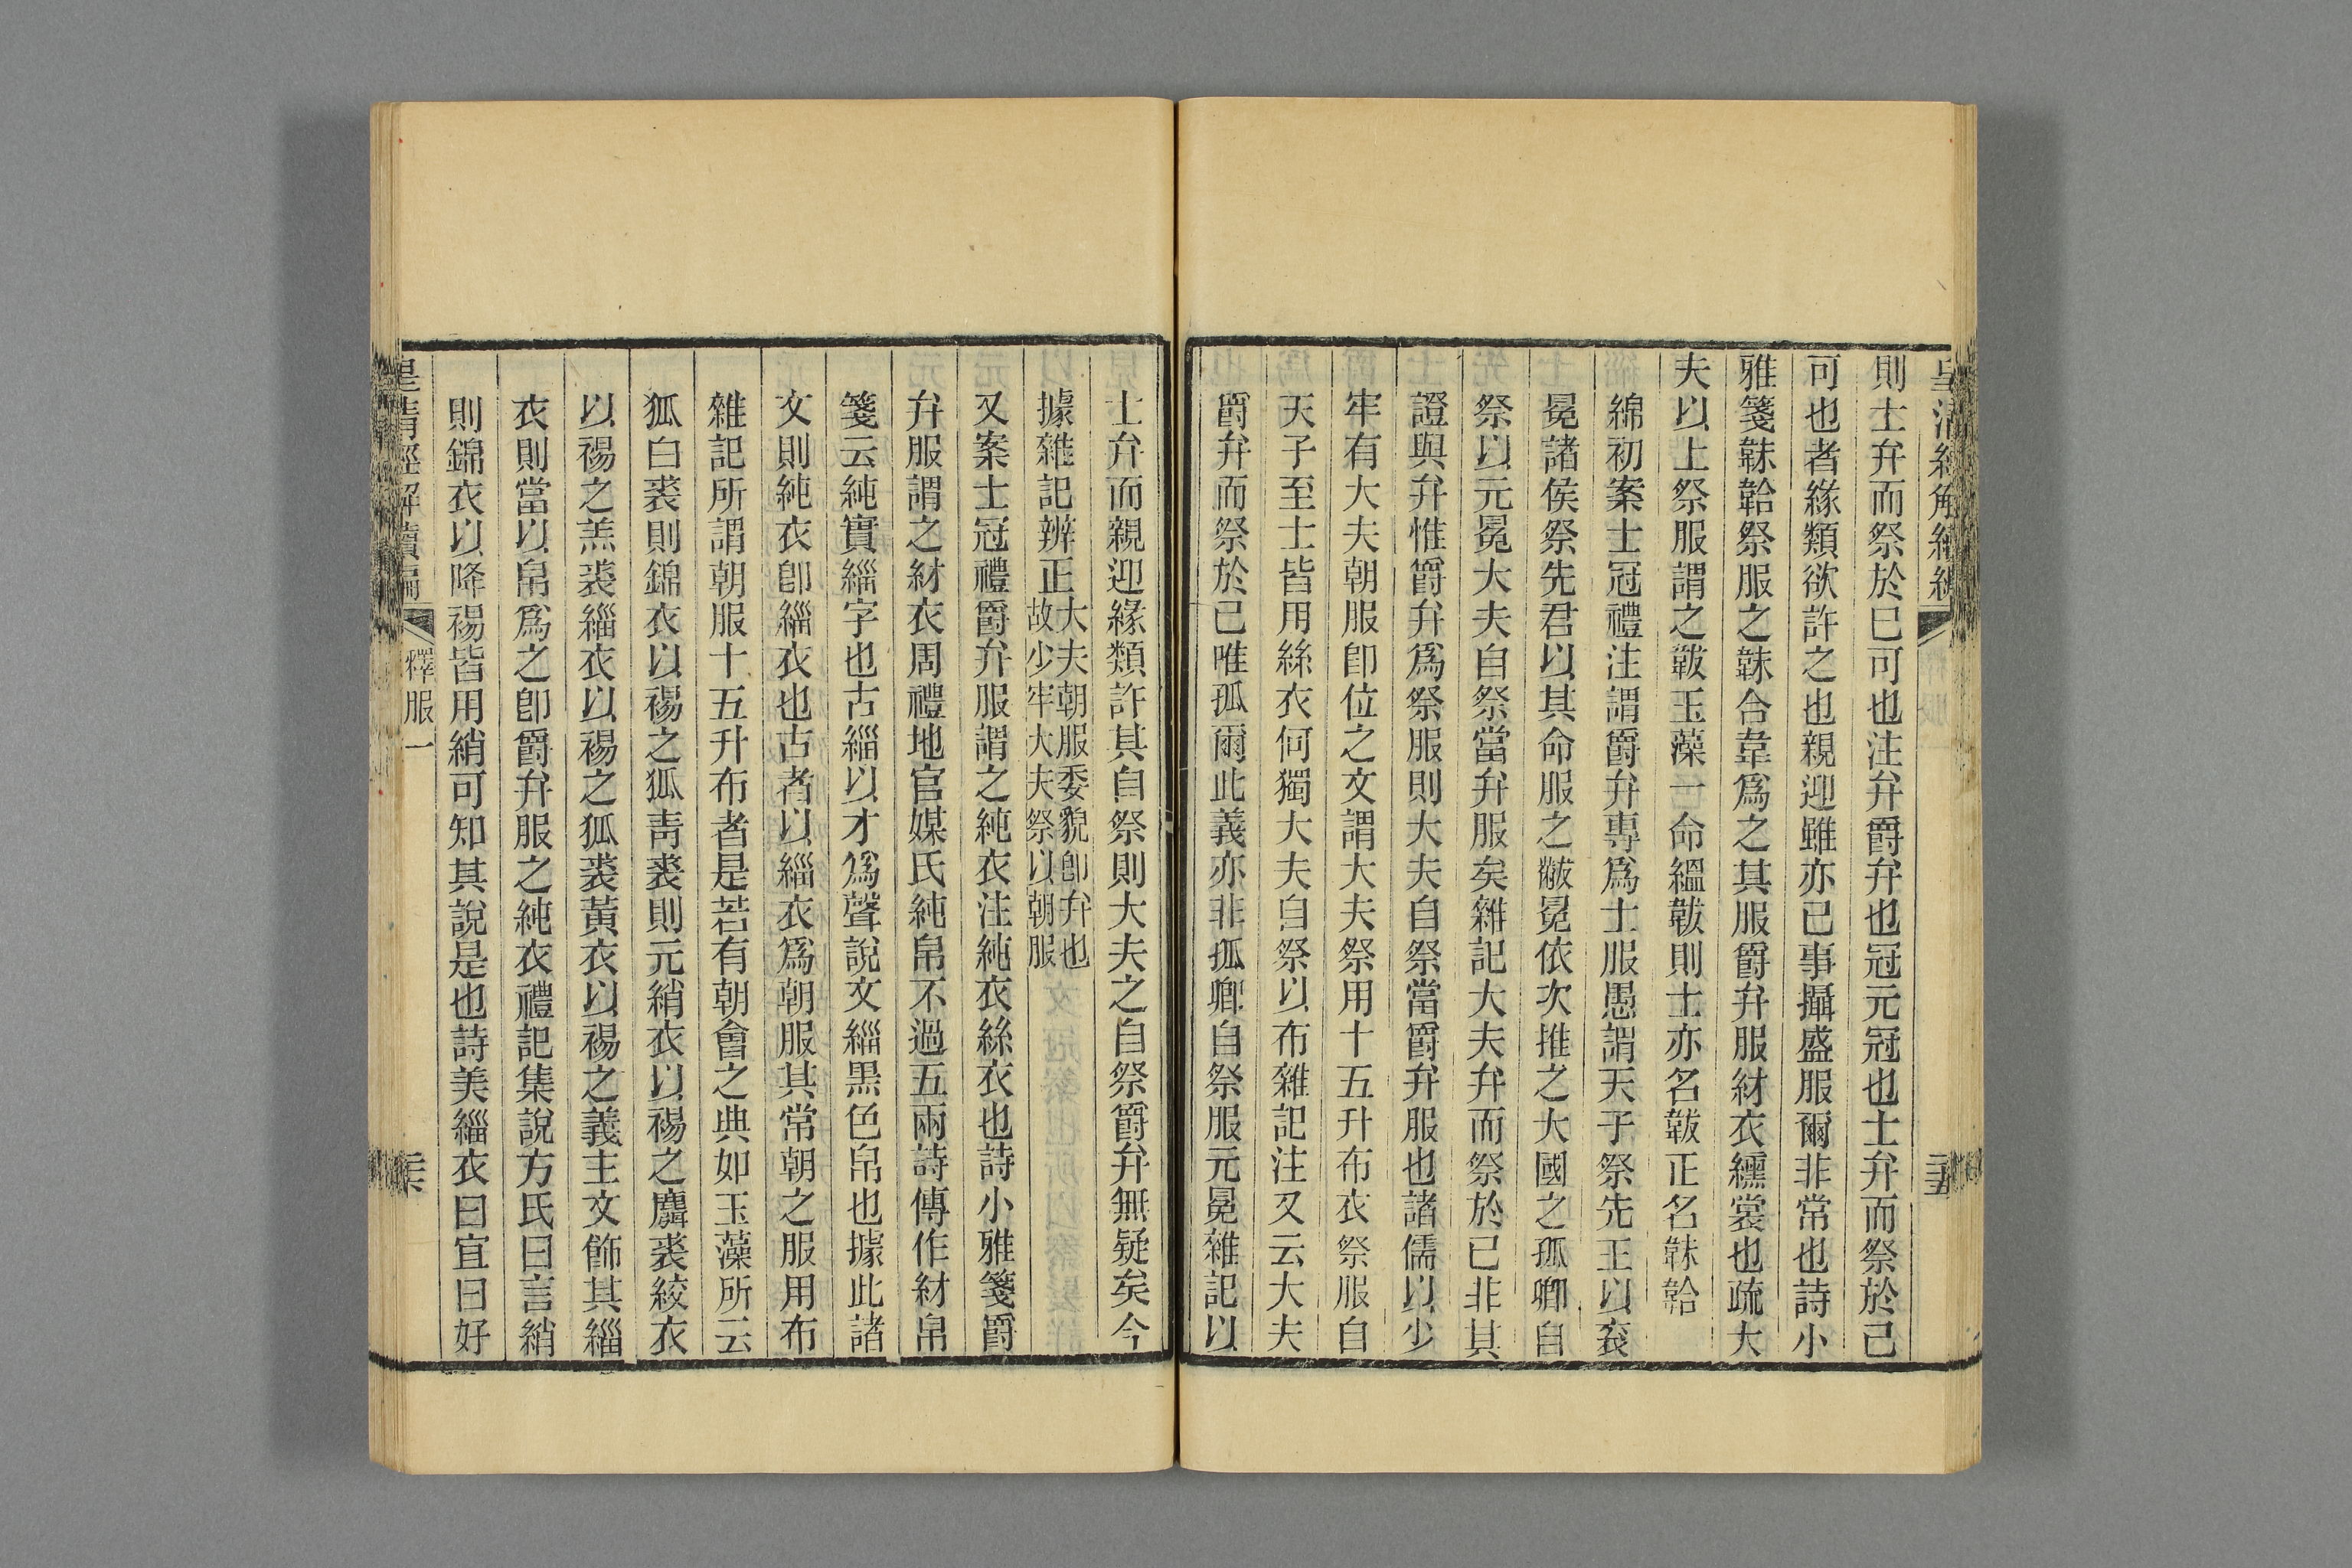 皇清經解續編
則士弁而祭於已可也注弁爵弁也冠元冠也士弁而祭於己
可也者緣類欲許之也親迎雖亦已事攝盛服爾非常也詩小
雅箋韎韐祭服之韎合韋爲之其服爵弁服紂衣纁裳也疏大
夫以上祭服謂之韍玉藻一命縕韍則士亦名韍正名韎韐
綿初案士冠禮注謂爵弁專爲士服愚謂天子祭先王以袞
冕諸侯祭先君以其命服之黻冕依次推之大國之孤卿自
祭以元冕大夫自祭當弁服矣雜記大夫弁而祭於已非其
證與弁惟爵弁爲祭服則大夫自祭當爵弁服也諸儒以少
牢有大夫朝服卽位之文謂大夫祭用十五升布衣祭服自
天子至士皆用絲衣何獨大夫自祭以布雜記注又云大夫
爵弁而祭於已唯孤爾此義亦非孤卿自祭服元冕雜記以
士弁而親迎緣類許其自祭則大夫之自祭爵弁無疑矣今
據雜記辨正大夫朝服委貌卽弁也
故少牢大夫祭以朝服
又案士冠禮爵弁服謂之純衣注純衣絲衣也詩小雅箋爵
弁服謂之紂衣周禮地官媒氏純帛不過五兩詩傳作紂帛
箋云純實緇字也古緇以才爲聲說文緇黑色帛也據此諸
文則純衣卽緇衣也古者以緇衣爲朝服其常朝之服用布
雜記所謂朝服十五升布者是若有朝會之典如玉藻所云
狐白裘則錦衣以裼之狐靑裘則元綃衣以裼之麛裘絞衣
以裼之羔裘緇衣以裼之狐裘黃衣以裼之義主文飾其緇
衣則當以帛爲之卽爵弁服之純衣禮記集說方氏曰言綃
則錦衣以降裼皆用綃可知其說是也詩美緇衣曰宜曰好
皇清經解續編
釋服一